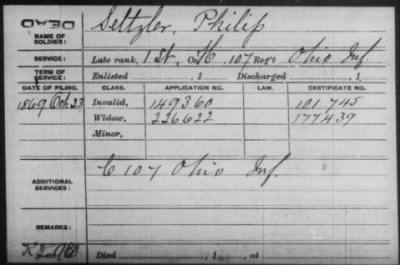 DEAD
NAME OF SOLDIER: Seltzler, Philip
SERVICE: Late rank, 1 St, Co. H, 107 Reg't Ohio Inf.
TERM OF SERVICE: Enlisted , 1 Discharged , 1 .
DATE OF FILING. CLASS. APPLICATION NO. LAW. CERTIFICATE NO.
1869 Oct. 23 Invalid, 149360 101745
Widow, 226622 177439
Minor,
ADDITIONAL SERVICES: C 107 Ohio Inf.
REMARKS:
Died , 1 , at